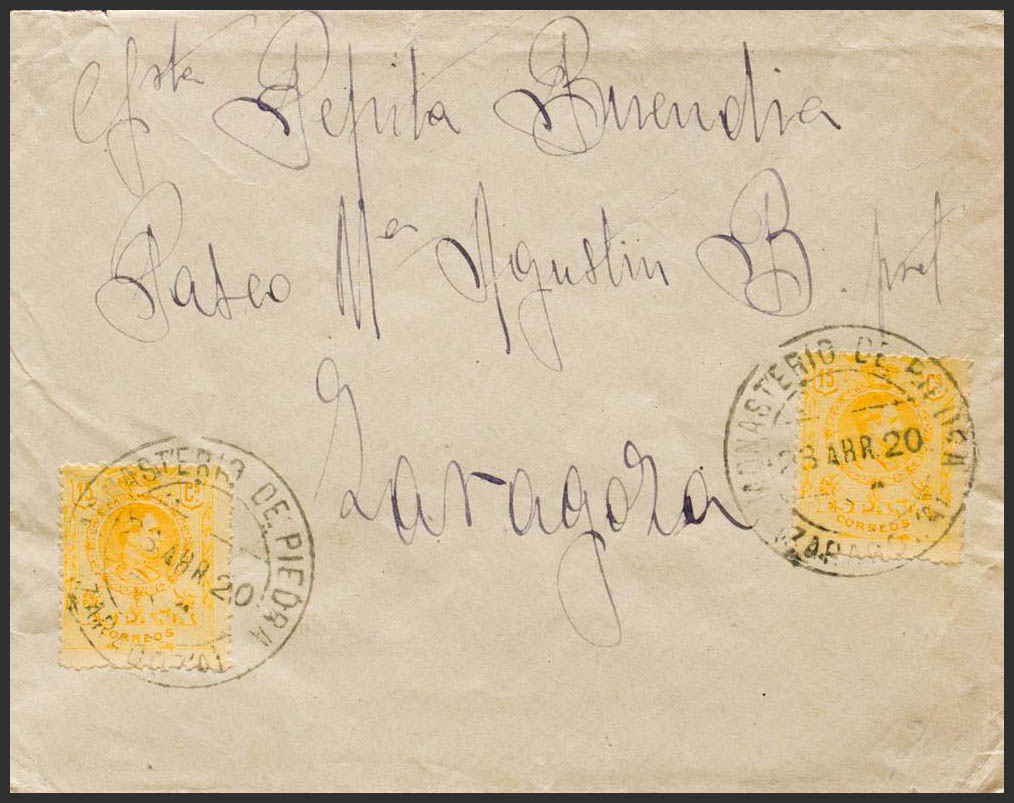 Srta Pepita Buendia
Paseo Mª Agustin B. pral
Zaragoza
MONASTERIO DE PIEDRA
28 ABR. 20
(ZARAGOZA)
15 Cs
CORREOS
MONASTERIO DE PIEDRA
28 ABR. 20
(ZARAGOZA)
15 Cs
ESPAÑA
CORREOS